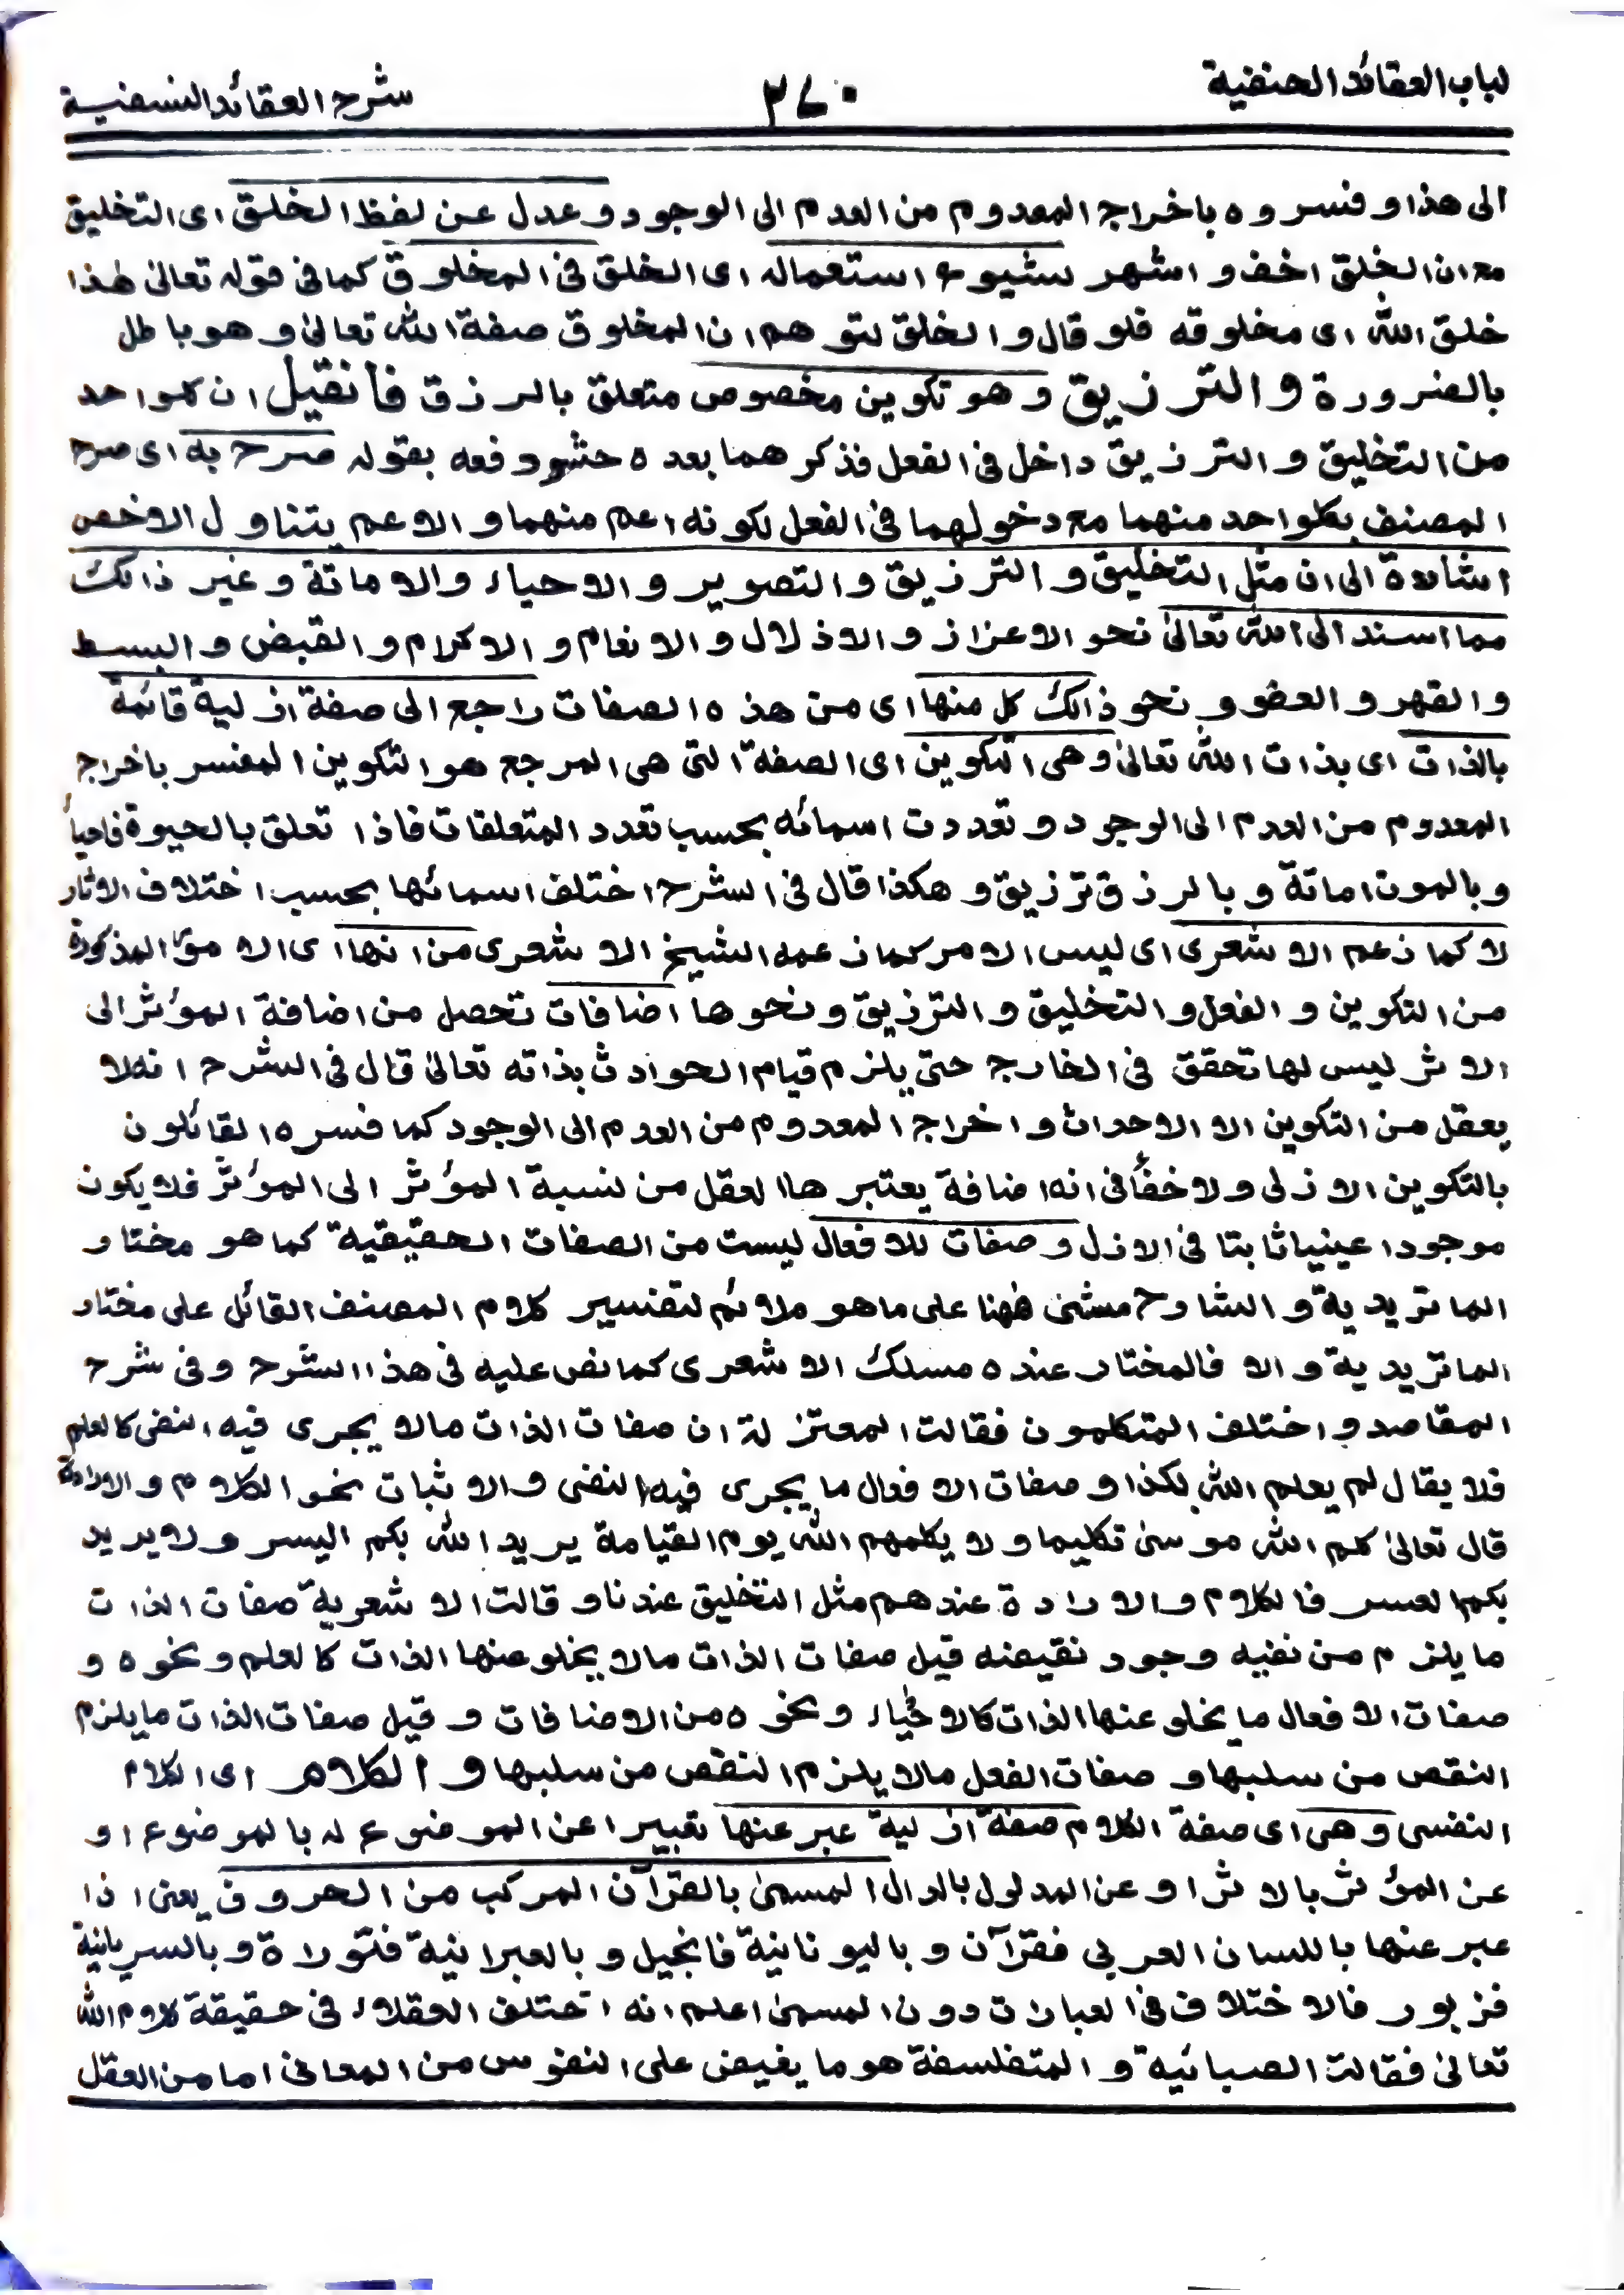 لباب العقائد الحنفية
٣٤٠
شرح العقائد النسفية
الى هذا وفسروه باخراج المعدوم من العدم الى الوجود وعدل عن لفظ الخلق اى التخليق
مع ان الخلق اخف واشهر لشيوع استعماله اى الخلق فى المخلوق كما فى قوله تعالى هذا
خلق الله اى مخلوقه فلو قال والخلق لتوهم ان المخلوق صفة الله تعالى وهو باطل
بالضرورة والترزيق وهو تكوين مخصوص متعلق بالرزق فانقيل ان كلواحد
من التخليق والترزيق داخل فى الفعل فذكرهما بعده حشو دفعه بقوله صرح به اى صرح
المصنف بكلواحد منهما مع دخولهما فى الفعل لكونه اعم منهما والاعم يتناول الاخص
اشارة الى ان مثل التخليق والترزيق والتصوير والاحياء والاماتة وغير ذالك
مما اسند الى الله تعالى نحو الاعزاز والاذلال والانعام والاكرام والقبض والبسط
والقهر والعفو ونحو ذالك كل منها اى من هذه الصفات راجع الى صفة ازلية قائمة
بالذات اى بذات الله تعالى وهى التكوين اى الصفة التى هى المرجع هو التكوين المفسر باخراج
المعدوم من العدم الى الوجود وتعددت اسمائه بحسب تعدد المتعلقات فاذا تعلق بالحيوة فاحياأ
وبالموت اماتة وبالرزق ترزيق وهكذا قال فى الشرح اختلف اسمائها بحسب اختلاف الاثار
لا كما زعم الاشعرى اى ليس الامر كما زعمه الشيخ الاشعرى من انها اى الامور المذكورة
من التكوين والفعل والتخليق والترزيق ونحوها اضافات تحصل من اضافة المؤثر الى
الاثر ليس لها تحقق فى الخارج حتى يلزم قيام الحوادث بذاته تعالى قال فى الشرح انه لا
يعقل من التكوين الا الاحداث واخراج المعدوم من العدم الى الوجود كما فسره القائلون
بالتكوين الازلى ولا خفأ فى انه اضافة يعتبرها العقل من نسبة المؤثر الى المؤثر فلا يكون
موجودا عينيا ثابتا فى الازل وصفات للافعال ليست من الصفات الحقيقية كما هو مختار
الماتريدية والشارح مشى ههنا على ما هو ملائم لتفسير كلام المصنف القائل على مختار
الماتريدية والا فالمختار عنده مسلك الاشعرى كما نص عليه فى هذا الشرح وفى شرح
المقاصد واختلف المتكلمون فقالت المعتزلة ان صفات الذات مالا يجرى فيه النفى كالعلم
فلا يقال لم يعلم الله بكذا وصفات الافعال ما يجرى فيه النفى والاثبات نحو الكلام والارادة
قال تعالى كلم الله موسى تكليما ولا يكلمهم الله يوم القيامة يريد الله بكم اليسر ولا يريد
بكم العسر فالكلام والارادة عندهم مثل التخليق عندنا وقالت الاشعرية صفات الذات
ما يلزم من نفيه وجود نقيضه قيل صفات الذات مالا يخلو عنها الذات كالعلم ونحوه و
صفات الافعال ما يخلو عنها الذات كالاحياء ونحوه من الاضافات وقيل صفات الذات ما يلزم
النقص من سلبها وصفات الفعل مالا يلزم النقص من سلبها والكلام اى الكلام
النفسى وهى اى صفة الكلام صفة ازلية عبر عنها تعبيرا عن الموضوع له بالموضوع او
عن المؤثر بالاثر او عن المدلول بالدال المسمى بالقرآن المركب من الحروف يعنى اذا
عبر عنها باللسان العربى فقرآن وباليونانية فانجيل وبالعبرانية فتوراة وبالسريانية
فزبور فالاختلاف فى العبارات دون المسمى اعلم انه اختلف العقلاء فى حقيقة كلام الله
تعالى فقالت الصبائية والمتفلسفة هو ما يفيض على النفوس من المعانى اما من العقل